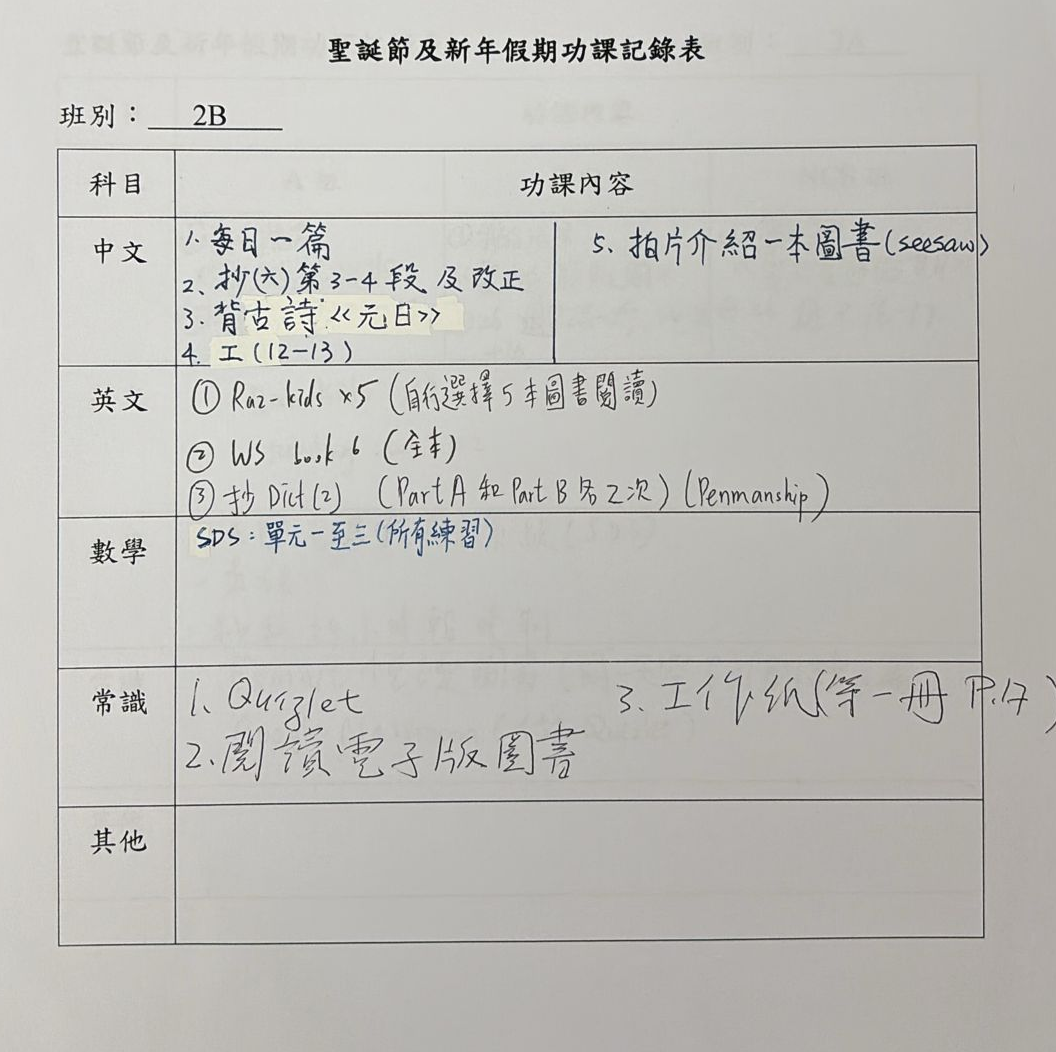 聖誕節及新年假期功課記錄表
班別：2B
科目 功課內容
中文
1. 每日一篇
2. 抄(六)第3-4段及改正
3. 背古詩《元日》
4. 工(12-13)
5. 拍片介紹一本圖書(seesaw)
英文
① Raz-kids x5 (自行選擇5本圖書閱讀)
② WS book 6 (全本)
③ 抄Dict(2) (Part A 和 Part B 各2次) (Penmanship)
數學
SDS：單元一至三(所有練習)
常識
1. Quizlet
2. 閱讀電子版圖書
3. 工作紙(第一冊 P.17)
其他